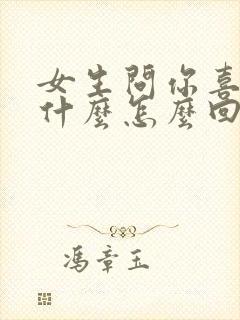 女生問你喜
什麼怎麼回
馮章玉